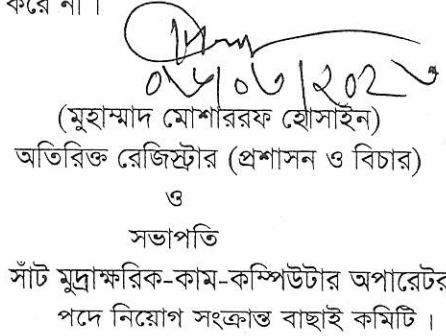 করে না।
(মুহাম্মাদ মোশাররফ হোসাইন)
অতিরিক্ত রেজিস্ট্রার (প্রশাসন ও বিচার)
ও
সভাপতি
সাঁট মুদ্রাক্ষরিক-কাম-কম্পিউটার অপারেটর
পদে নিয়োগ সংক্রান্ত বাছাই কমিটি।